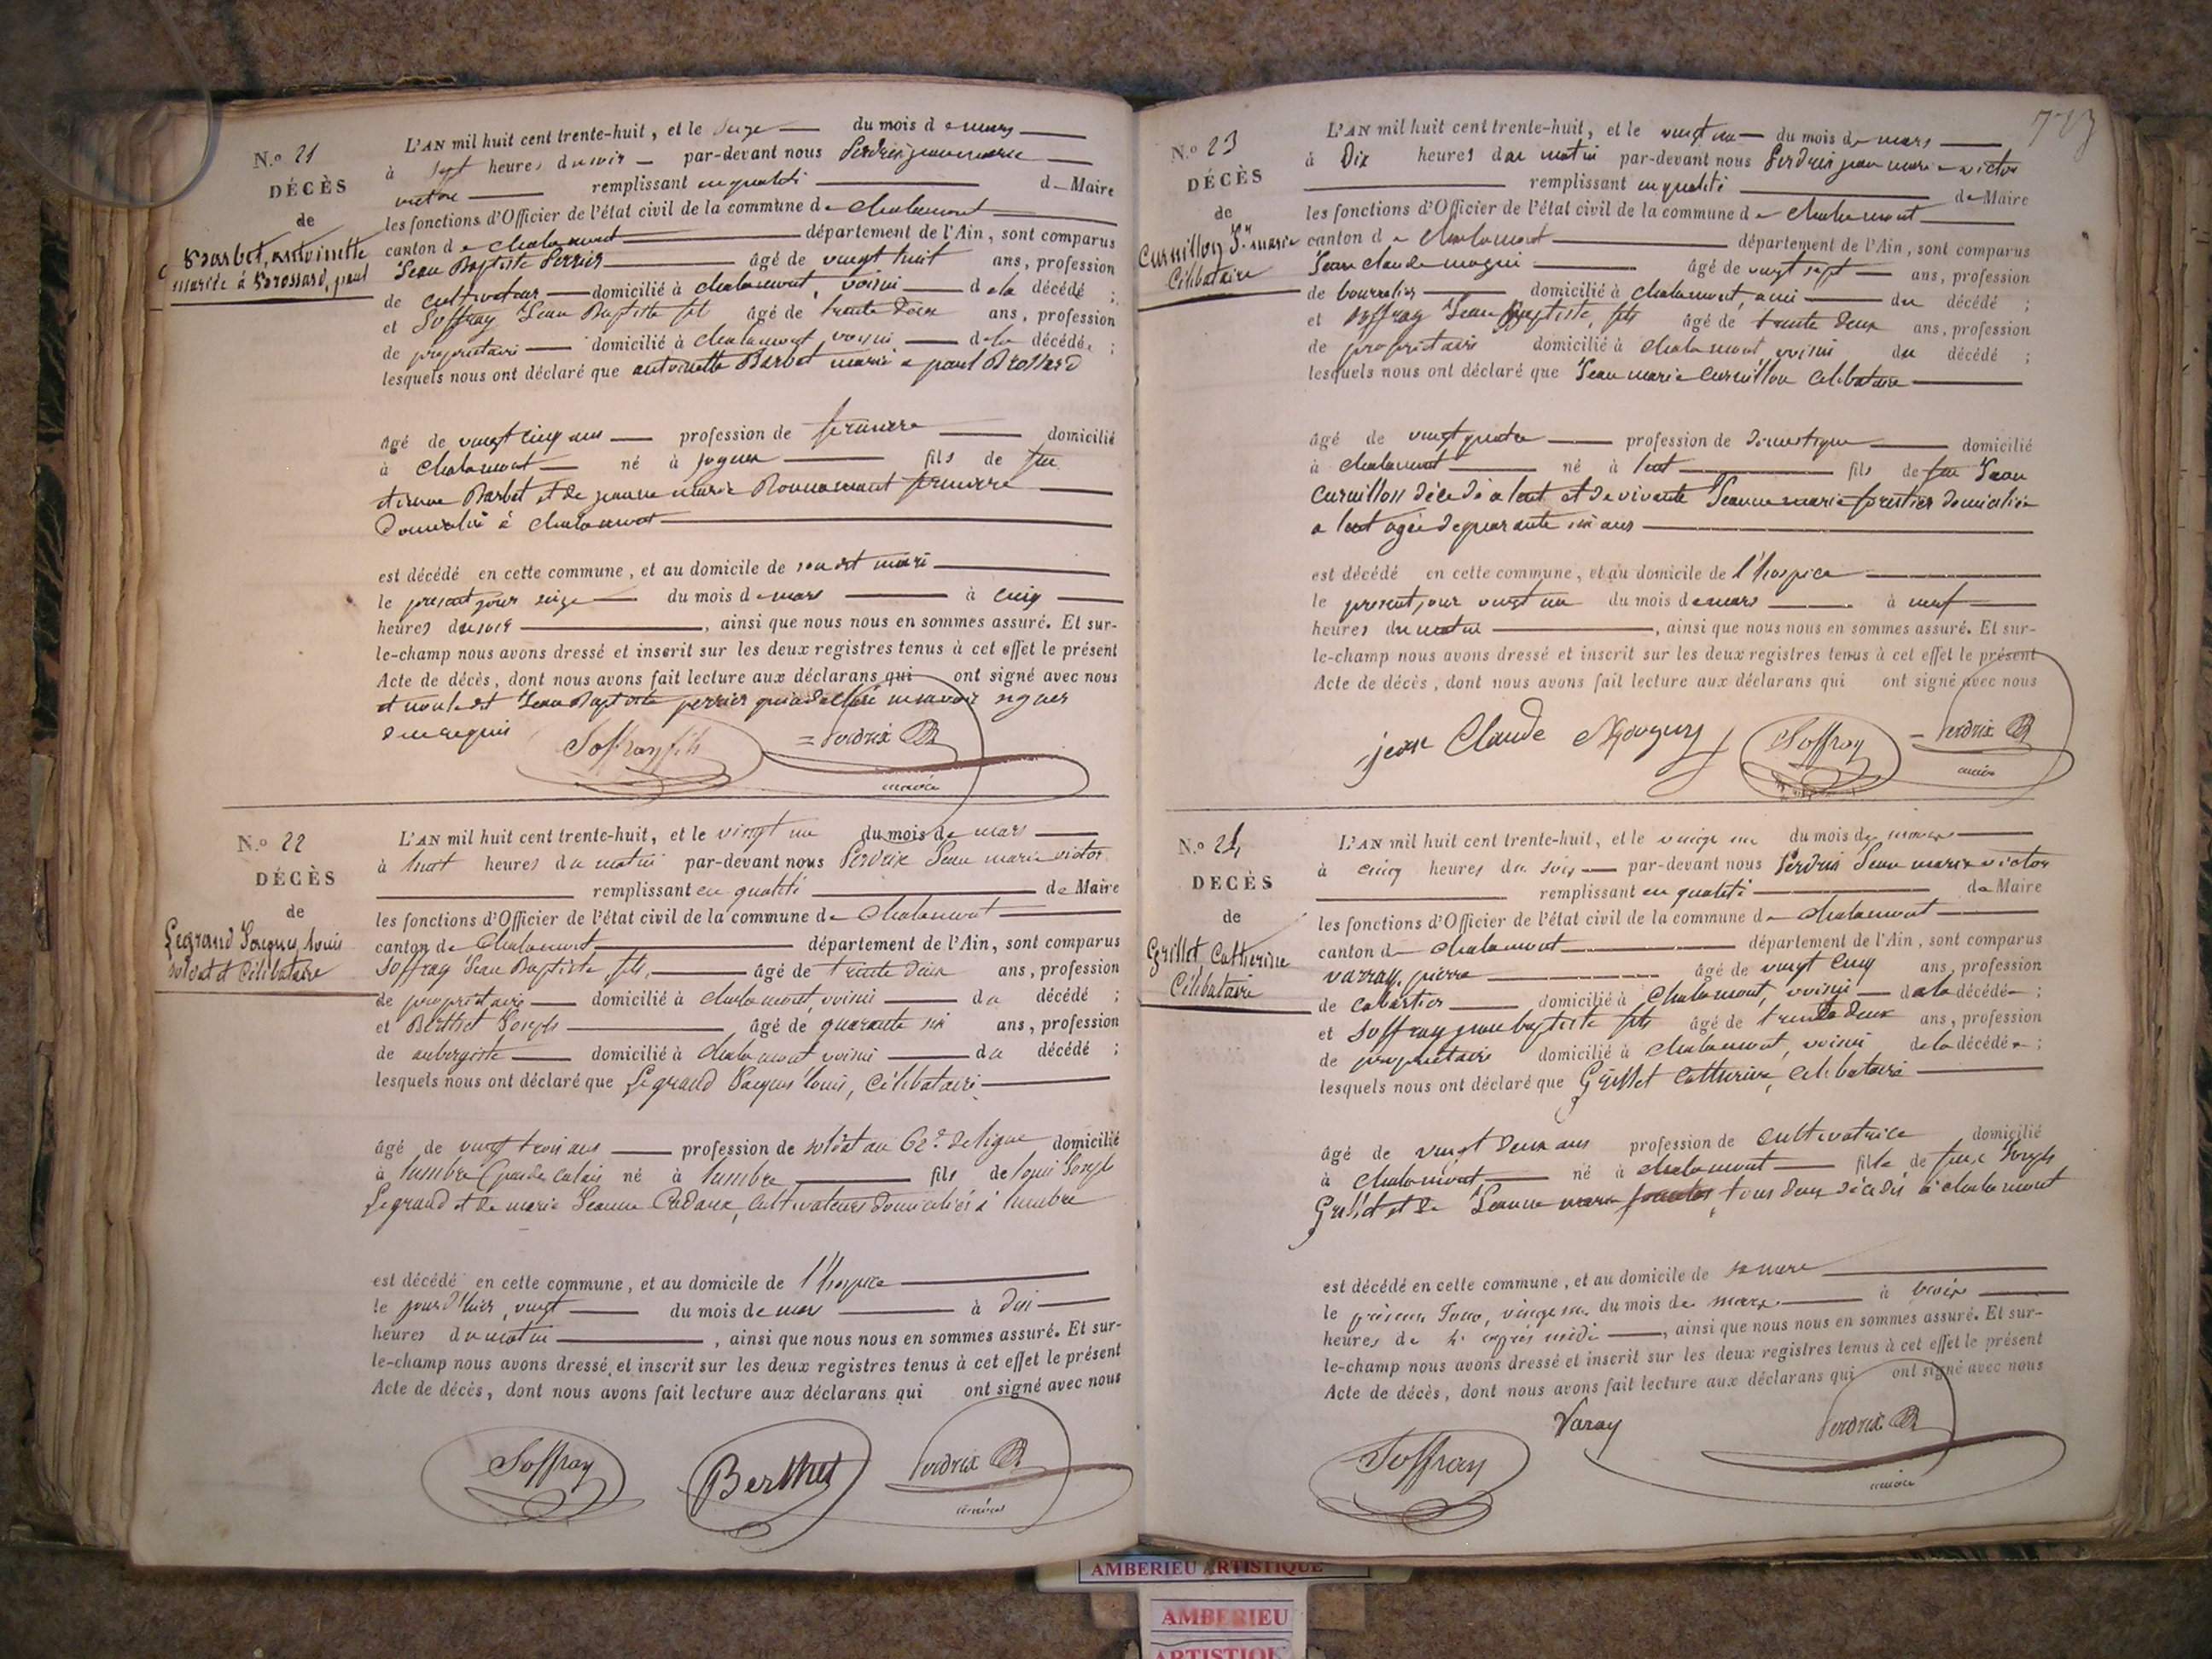 N.o 21
DÉCÈS
de
Barbet, antoinette
mariée à Brossard, paul
L'AN mil huit cent trente-huit, et le seize du mois de mars
à sept heures du soir par-devant nous Perdrix jean marie
victor remplissant en qualité de Maire
les fonctions d'Officier de l'état civil de la commune de chalamont
canton de chalamont département de l'Ain, sont comparus
Jean Baptiste Perrier âgé de vingt huit ans, profession
de cultivateur domicilié à chalamont, voisin de la décédé ;
et Soffray Jean Baptiste fils âgé de trente deux ans, profession
de propriétaire domicilié à chalamont, voisin de la décédé, ;
lesquels nous ont déclaré que antoinette Barbet marié a paul Brossard
âgé de vingt cinq ans profession de domicilié
à chalamont né à joyeux fils de feu
etienne Barbet et de jeanne marie
domicilié à chalamont
est décédé en cette commune, et au domicile de son dit mari
le present jour seize du mois de mars à cinq
heures du soir, ainsi que nous nous en sommes assuré. Et sur-
le-champ nous avons dressé et inscrit sur les deux registres tenus à cet effet le présent
Acte de décès, dont nous avons fait lecture aux déclarans qui ont signé avec nous
et non le dit Jean Baptiste perrier qui a déclaré ne savoir signer
de ce requis
Soffray fils Perdrix
maire
N.o 22
DÉCÈS
de
Legrand Jacques Louis
soldat et Célibataire
L'AN mil huit cent trente-huit, et le vingt un du mois de mars
à huit heures du matin par-devant nous Perdrix Jean marie victor
remplissant en qualité de Maire
les fonctions d'Officier de l'état civil de la commune de chalamont
canton de Chalamont département de l'Ain, sont comparus
Soffray Jean Baptiste fils, âgé de trente deux ans, profession
de propriétaire domicilié à chalamont, voisin du décédé ;
et Berthet Joseph âgé de quarante six ans, profession
de aubergiste domicilié à chalamont voisin du décédé ;
lesquels nous ont déclaré que Legrand Jacques Louis, Célibataire
âgé de vingt trois ans profession de soldat au 62e de ligne domicilié
à lumbre (pas de calais né à lumbre fils de louis Joseph
Legrand et de marie Jeanne, cultivateurs domiciliés à lumbre
est décédé en cette commune, et au domicile de l'hospice
le jour d'hier, vingt du mois de mars à dix
heures du matin, ainsi que nous nous en sommes assuré. Et sur-
le-champ nous avons dressé et inscrit sur les deux registres tenus à cet effet le présent
Acte de décès, dont nous avons fait lecture aux déclarans qui ont signé avec nous
Soffray Berthet Perdrix
maire
N.o 23
DÉCÈS
de
Curnillon Jn marie
Célibataire
L'AN mil huit cent trente-huit, et le vingt un du mois de mars
à Dix heures du matin par-devant nous Perdrix jean marie victor
remplissant en qualité de Maire
les fonctions d'Officier de l'état civil de la commune de chalamont
canton de Chalamont département de l'Ain, sont comparus
Jean claude âgé de vingt sept ans, profession
de bourrelier domicilié à chalamont, ami du décédé ;
et Soffray Jean Baptiste, fils âgé de trente deux ans, profession
de propriétaire domicilié à chalamont, voisin du décédé ;
lesquels nous ont déclaré que Jean marie curnillon célibataire
âgé de vingt quatre profession de domestique domicilié
à chalamont né à lent fils de feu Jean
curnillon décédé a lent et de vivante Jeanne marie forestier domiciliée
a lent agée de quarante six ans
est décédé en cette commune, et au domicile de l'hospice
le present jour vingt un du mois de mars à neuf
heures du matin, ainsi que nous nous en sommes assuré. Et sur-
le-champ nous avons dressé et inscrit sur les deux registres tenus à cet effet le présent
Acte de décès, dont nous avons fait lecture aux déclarans qui ont signé avec nous
jean Claude Soffray Perdrix
maire
N.o 24
DÉCÈS
de
Grillet Catherine
Célibataire
L'AN mil huit cent trente-huit, et le vingt un du mois de mars
à cinq heures du soir par-devant nous Perdrix Jean marie victor
remplissant en qualité de Maire
les fonctions d'Officier de l'état civil de la commune de chalamont
canton de chalamont département de l'Ain, sont comparus
varray, pierre âgé de vingt cinq ans, profession
de cabartier domicilié à Chalamont, voisin de la décédé ;
et Soffray jean baptiste fils âgé de trente deux ans, profession
de propriétaire domicilié à chalamont, voisin de la décédée ;
lesquels nous ont déclaré que Grillet Catherine, célibataire
âgé de vingt deux ans profession de cultivatrice domicilié
à Chalamont né à chalamont fille de feu Joseph
Grillet et de Jeanne marie tous deux décédés à chalamont
est décédé en cette commune, et au domicile de sa mere
le présent Jour, vingt un du mois de mars à trois
heures de l'après midi, ainsi que nous nous en sommes assuré. Et sur-
le-champ nous avons dressé et inscrit sur les deux registres tenus à cet effet le présent
Acte de décès, dont nous avons fait lecture aux déclarans qui ont signé avec nous
Soffray Varay Perdrix
maire
AMBERIEU ARTISTIQUE
AMBERIEU
ARTISTIQUE